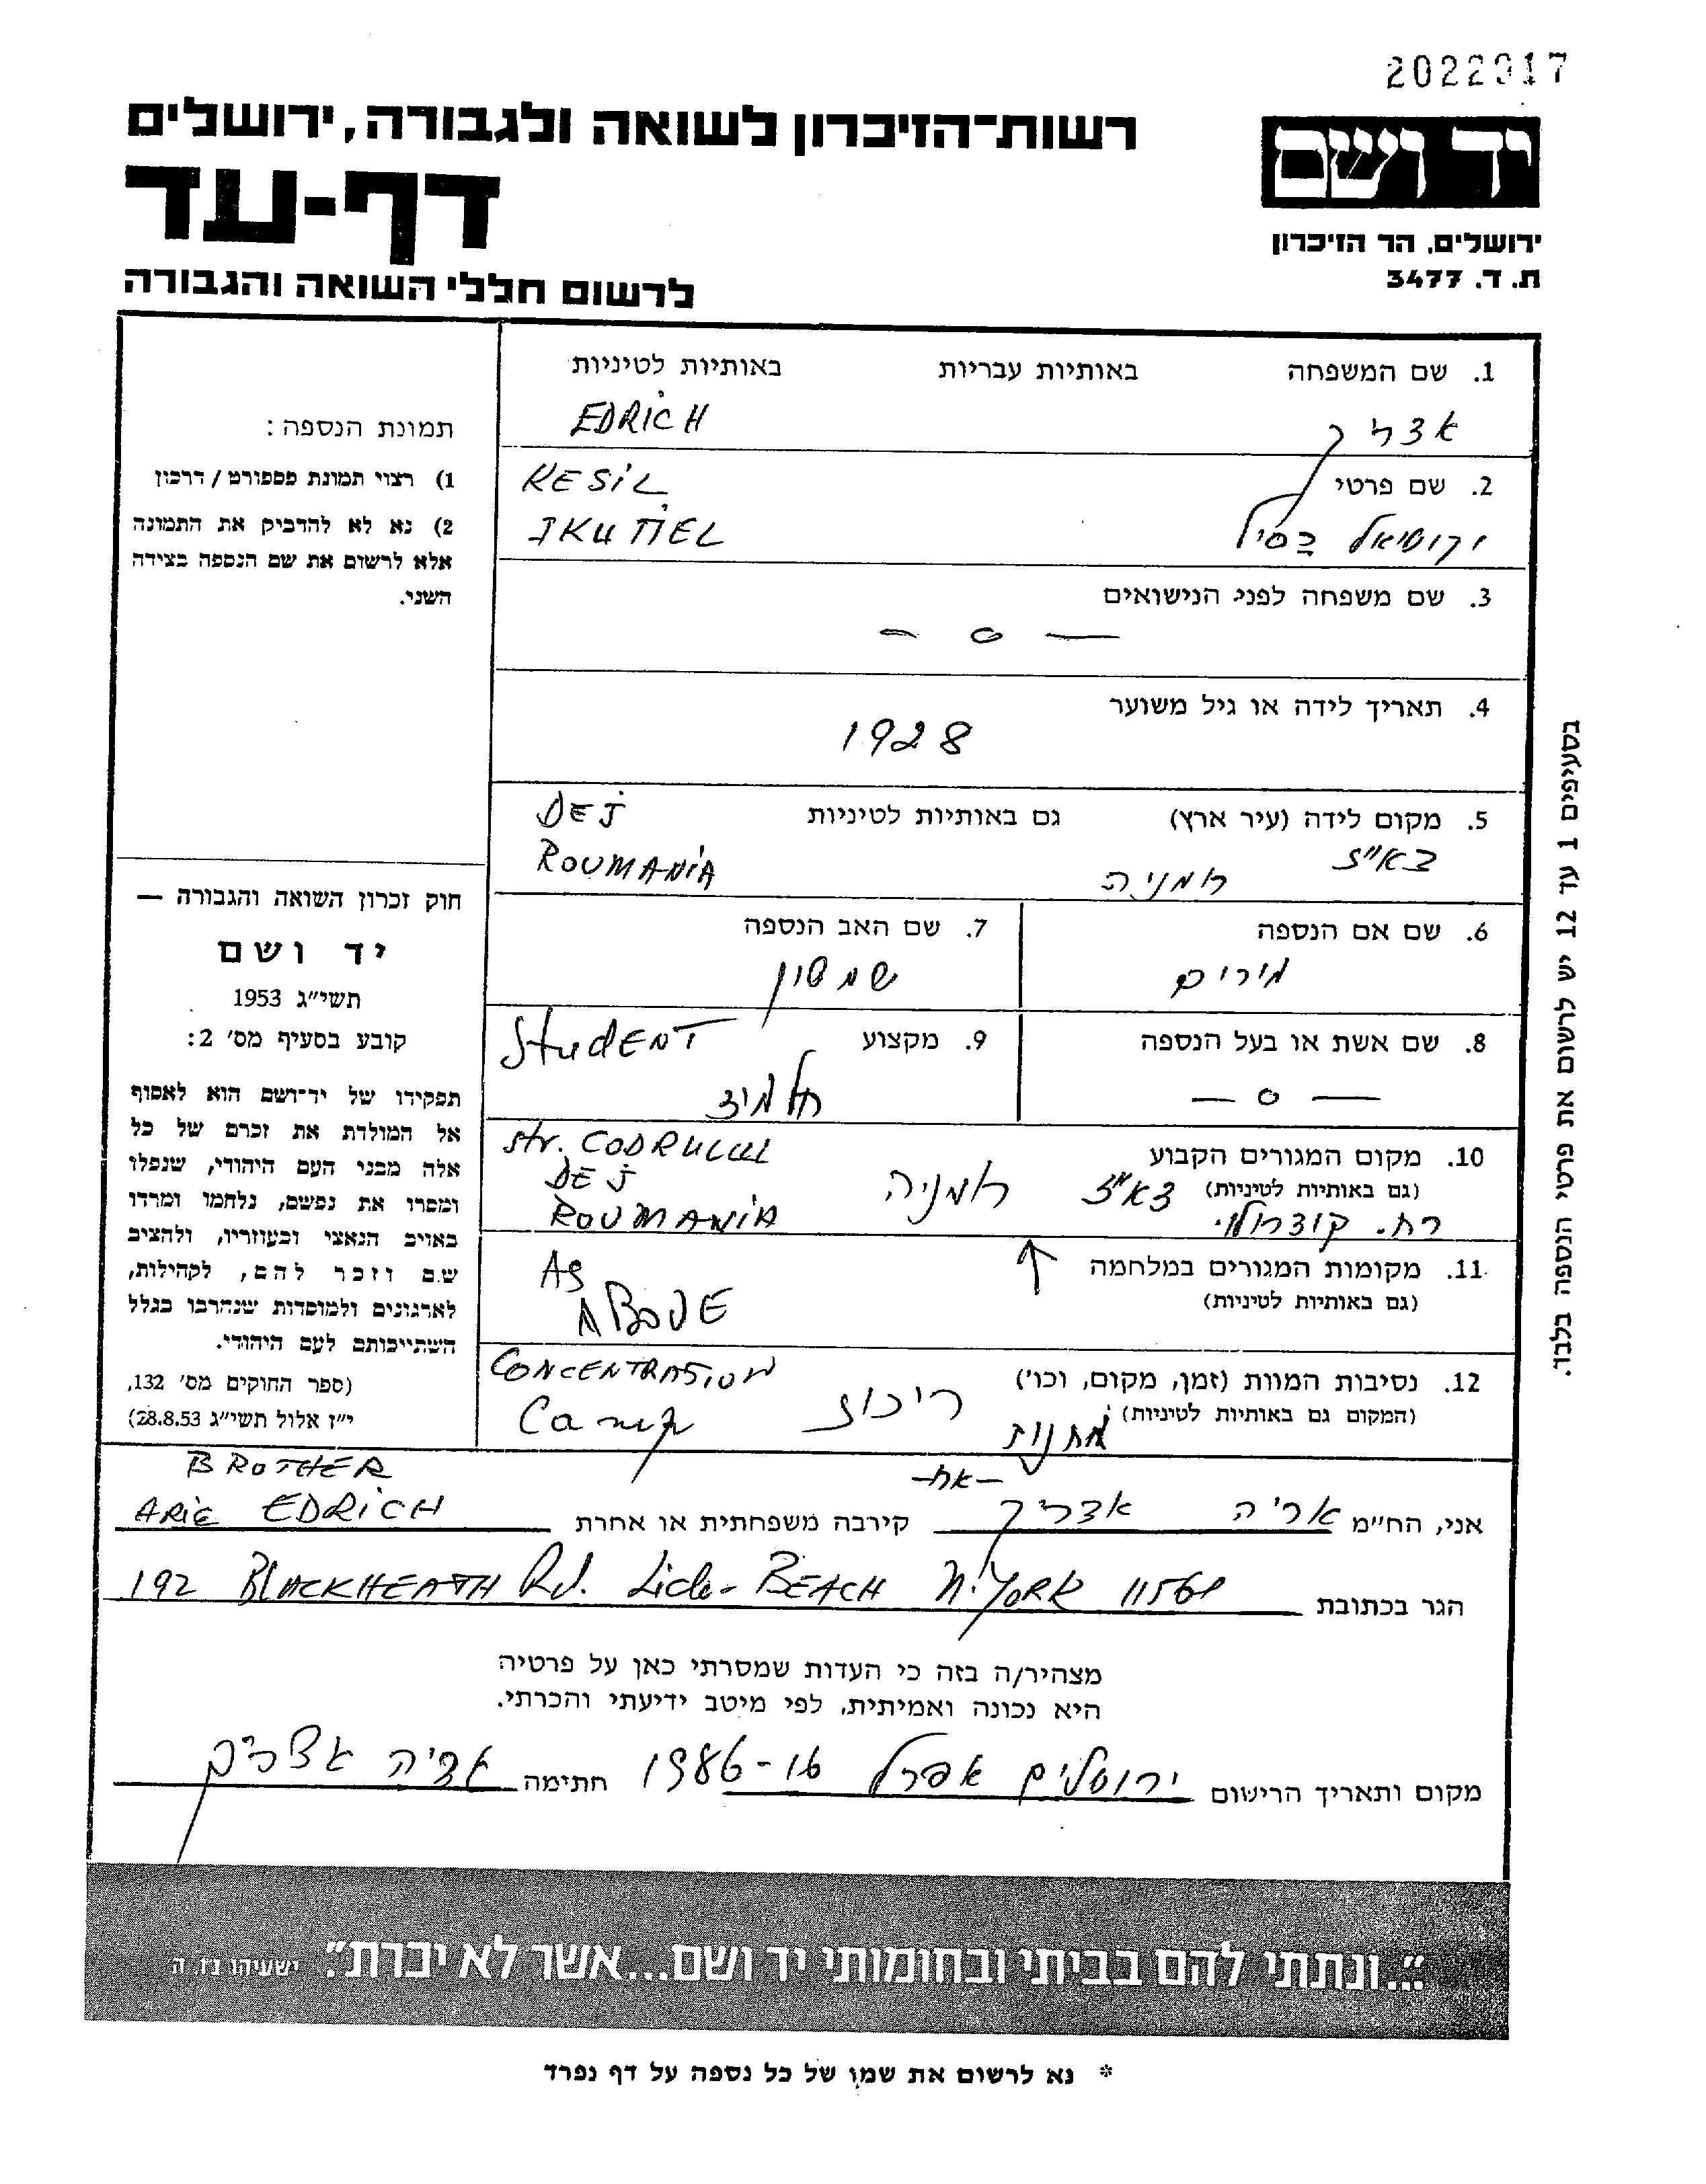 2022917
רשות-הזיכרון לשואה ולגבורה, ירושלים
יד ושם
דף-עד
ירושלים, הר הזיכרון
ת. ד. 3477
לרשום חללי השואה והגבורה
1. שם המשפחה באותיות עבריות באותיות לטיניות
אדריך EDRICH
2. שם פרטי
KESIL
יקותיאל כסיל IKUTIEL
3. שם משפחה לפני הנישואים
— o —
4. תאריך לידה או גיל משוער
1928
5. מקום לידה (עיר ארץ) גם באותיות לטיניות DEJ
דא"ז רומניה ROUMANIA
6. שם אם הנספה 7. שם האב הנספה
מירים שמשון
8. שם אשת או בעל הנספה 9. מקצוע STUDENT
— o — תלמיד
10. מקום המגורים הקבוע Str. CODRULUI
(גם באותיות לטיניות) דא"ז רומניה DEJ
רח. קודרולוי. ROUMANIA
11. מקומות המגורים במלחמה AS
(גם באותיות לטיניות) ABOVE
12. נסיבות המוות (זמן, מקום, וכו') CONCENTRATION
(המקום גם באותיות לטיניות) מחנות ריכוז Camp
תמונת הנספה:
1) רצוי תמונת פספורט / דרכון
2) נא לא להדביק את התמונה
אלא לרשום את שם הנספה בצידה
השני.
חוק זכרון השואה והגבורה —
יד ושם
תשי"ג 1953
קובע בסעיף מס' 2:
תפקידו של יד-ושם הוא לאסוף
אל המולדת את זכרם של כל
אלה מבני העם היהודי, שנפלו
ומסרו את נפשם, נלחמו ומרדו
באויב הנאצי ובעוזריו, ולהציב
שם וזכר להם, לקהילות,
לארגונים ולמוסדות שנחרבו בגלל
השתייכותם לעם היהודי.
(ספר החוקים מס' 132,
י"ז אלול תשי"ג 28.8.53)
בסעיפים 1 עד 12 יש לרשום את פרטי הנספה בלבד.
-אח- BROTHER
אני, הח"מ אריה אדריך קירבה משפחתית או אחרת ARIE EDRICH
הגר בכתובת 192 BLACKHEATH Rd. Lido-BEACH N.YORK 11561
מצהיר/ה בזה כי העדות שמסרתי כאן על פרטיה
היא נכונה ואמיתית, לפי מיטב ידיעתי והכרתי.
מקום ותאריך הרישום ירושלים אפריל 16-1986 חתימה אריה אדריך
"...ונתתי להם בביתי ובחומותי יד ושם...אשר לא יכרת". ישעיהו נ"ו, ה
* נא לרשום את שמו של כל נספה על דף נפרד